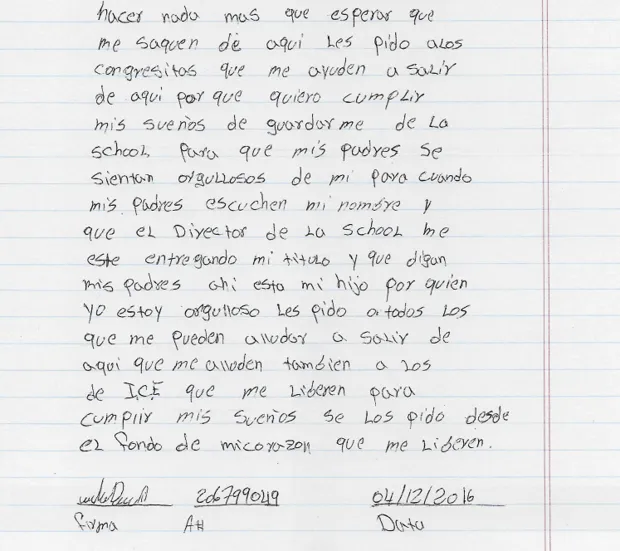 hacer nada mas que esperar que
me saquen de aqui Les pido aLos
congresitas que me ayuden a salir
de aqui por que quiero cumplir
mis sueños de guardarme de La
school para que mis padres se
sientan orguLLosos de mi para cuando
mis padres escuchen mi nombre y
que eL Director de La school me
este entregando mi titulo y que digan
mis padres ahi esta mi hijo por quien
yo estoy orgulloso Les pido a todos Los
que me pueden alludar a salir de
aqui que me alluden tambien a Los
de I.C.E que me Liberen para
cumplir mis sueños se Los pido desde
el fondo de micorazon que me Liberen.
206799049 04/12/2016
firma A# Data